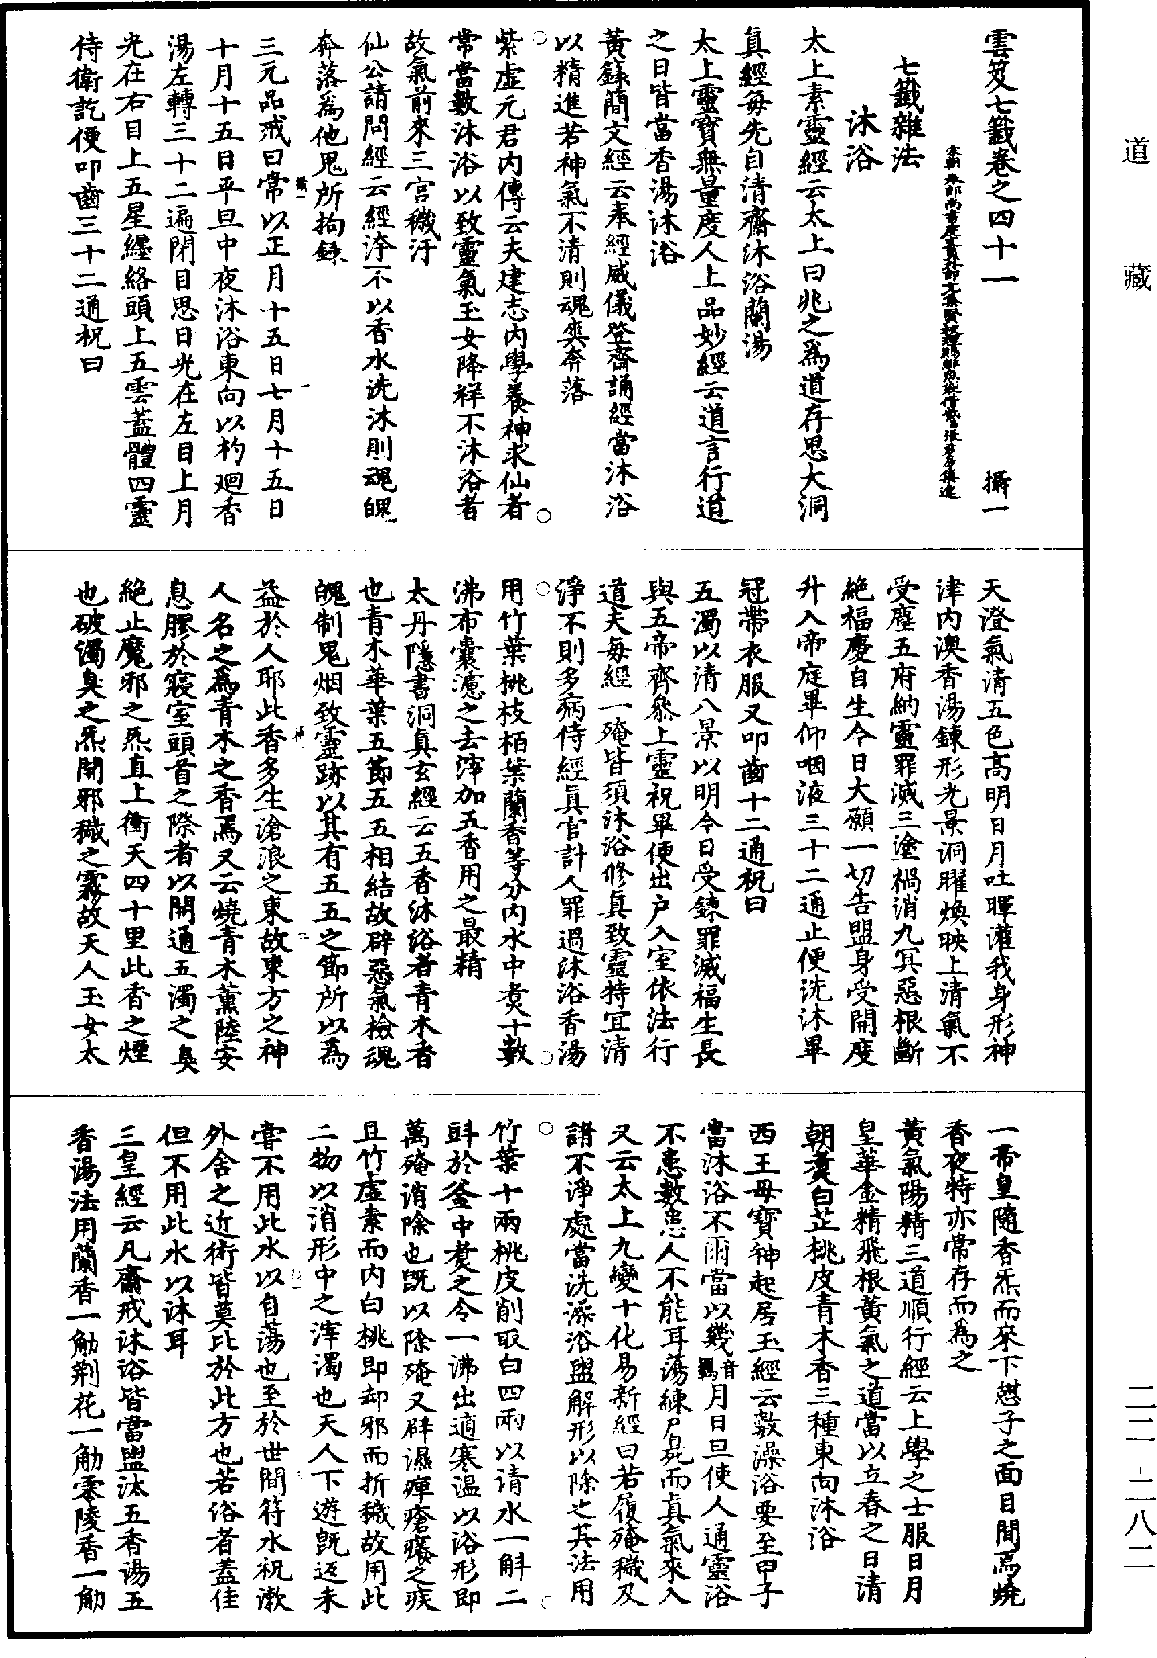 道藏
雲笈七籤卷之四十一 攝一
七籤雜法
沐浴
太上素靈經云太上曰兆之為道存思大洞
真經每先自清齋沐浴蘭湯
太上靈寶無量度人上品妙經云道言行道
之日皆當香湯沐浴
黃籙簡文經云奉經威儀登齋誦經當沐浴
以精進若神氣不清則魂爽奔落
紫虛元君內傳云夫建志內學養神求仙者
常當數沐浴以致靈氣玉女降祥不沐浴者
故氣前來三宮穢汙
仙公請問經云經洊不以香水洗沐則魂魄
奔落為他鬼所拘錄
三元品戒曰常以正月十五日七月十五日
十月十五日平旦中夜沐浴東向以杓迴香
湯左轉三十二遍閉目思日光在左目上月
光在右目上五星纏絡頭上五雲蓋體四靈
侍衛訖便叩齒三十二通祝曰
天澄氣清五色高明日月吐暉灌我身形神
津內澳香湯鍊形光景洞曜煥映上清氣不
受塵五府納靈罪滅三塗禍消九冥惡根斷
絕福慶自生今日大願一切告盟身受開度
升入帝庭畢仰咽液三十二通止便洗沐畢
冠帶衣服又叩齒十二通祝曰
五濁以清八景以明今日受鍊罪滅福生長
與五帝齊參上靈祝畢便出戶入室依法行
道夫每經一殗皆須沐浴修真致靈特宜清
淨不則多病侍經真官計人罪過沐浴香湯
用竹葉桃枝栢葉蘭香等分內水中煑十數
沸布囊濾之去滓加五香用之最精
太丹隱書洞真玄經云五香沐浴者青木香
也青木華葉五節五五相結故辟惡氣檢魂
魄制鬼烟致靈跡以其有五五之節所以為
益於人耶此香多生滄浪之東故東方之神
人名之為青木之香焉又云燒青木薰陸安
息膠於寢室頭首之際者以開通五濁之臭
絕止魔邪之炁直上衝天四十里此香之煙
也破濁臭之炁開邪穢之霧故天人玉女太
一帝皇隨香炁而來下憩子之面目間焉燒
香夜特亦常存而為之
黃氣陽精三道順行經云上學之士服日月
皇華金精飛根黃氣之道當以立春之日清
朝煑白芷桃皮青木香三種東向沐浴
西王母寶神起居玉經云數澡浴要至甲子
當沐浴不爾當以幾月日旦使人通靈浴
不患數患人不能耳蕩練尸臰而真氣來入
又云太上九變十化易新經曰若履殗穢及
諸不淨處當洗澡浴盥解形以除之其法用
竹葉十兩桃皮削取白四兩以清水一斛二
㪷於釜中煑之令一沸出適寒溫以浴形即
萬殗消除也既以除殗又辟濕痺瘡癢之疾
且竹虛素而內白桃即却邪而折穢故用此
二物以消形中之滓濁也天人下遊既返未
嘗不用此水以自蕩也至於世間符水祝漱
外舍之近術皆莫比於此方也若浴者蓋佳
但不用此水以沐耳
三皇經云凡齋戒沐浴皆當盥汰五香湯五
香湯法用蘭香一觔荊花一觔零陵香一觔
二二-二八二